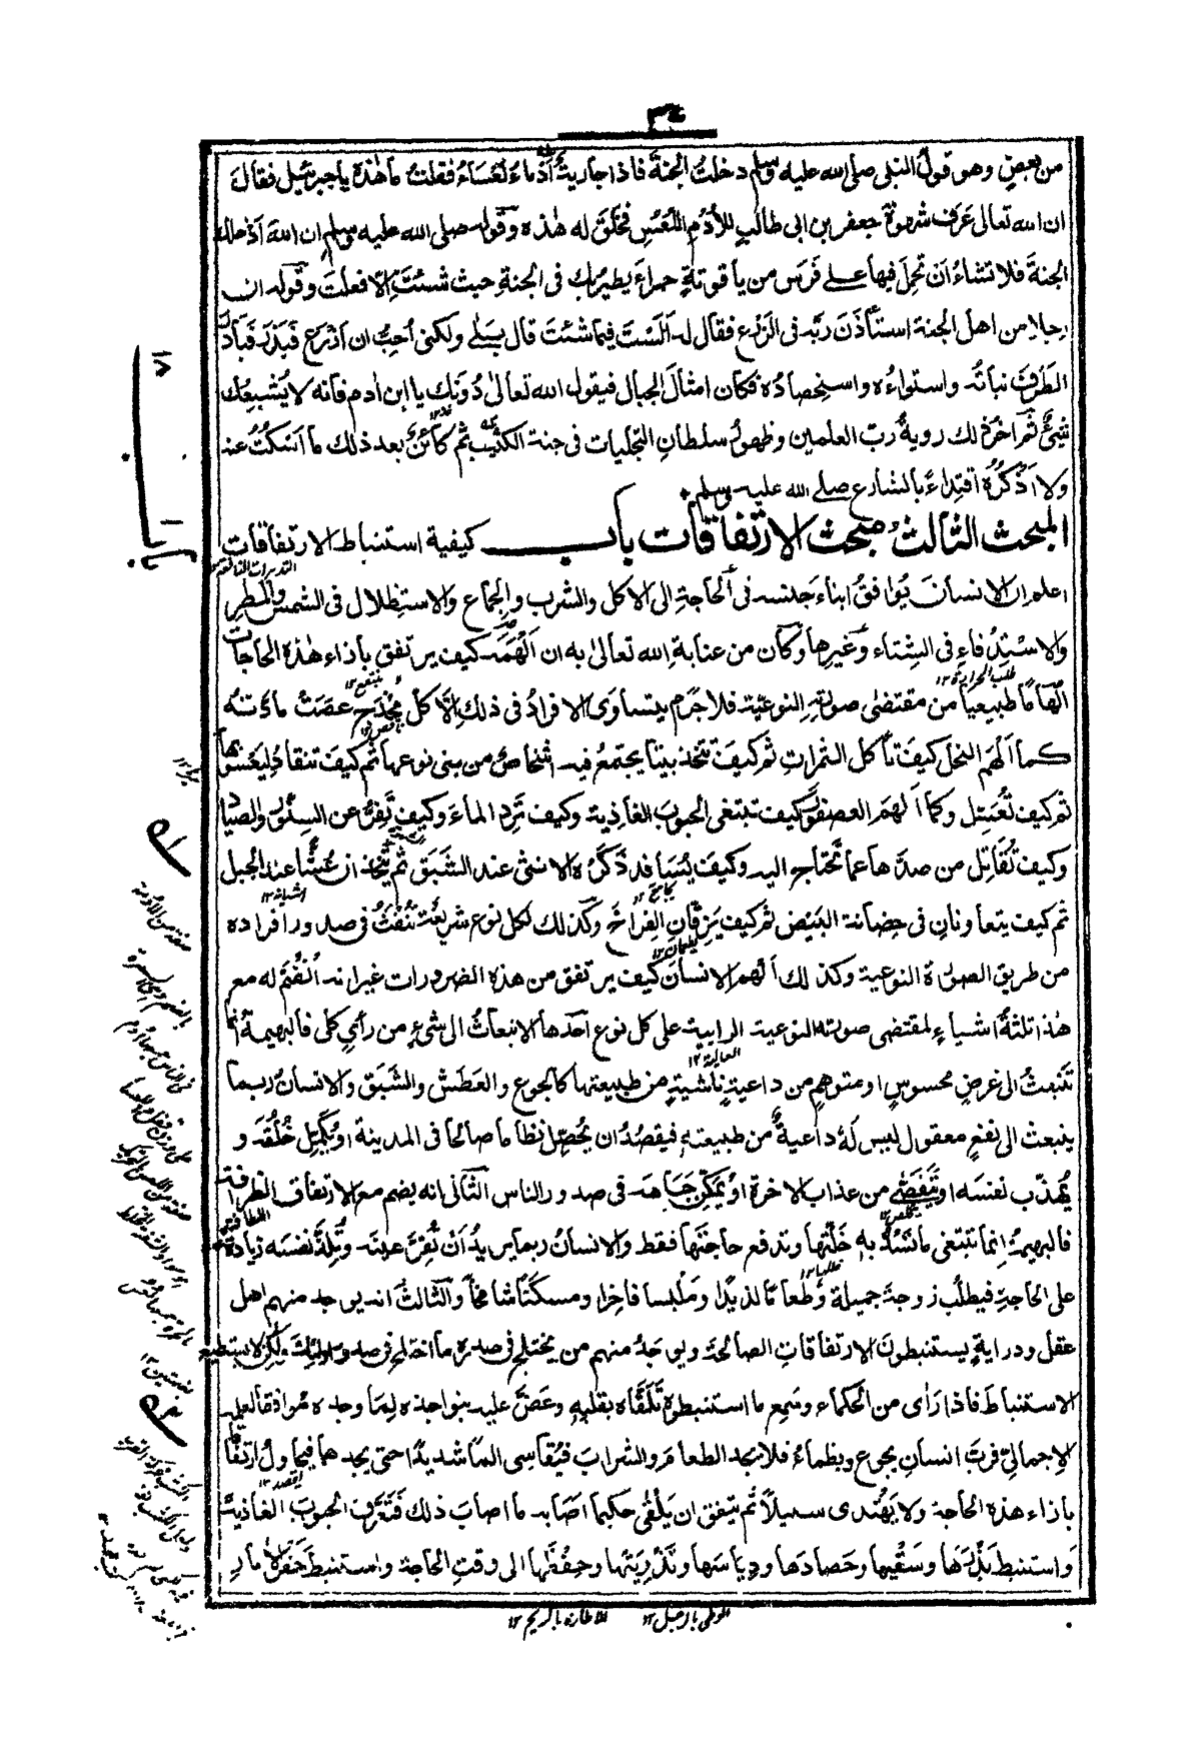 ٣٤
من بعضٍ وهو قولُ النبى صلى الله عليه وسلم دخلتُ الجنةَ فاذا جاريةٌ أَدْماءُ لَعْساءُ فقلتُ ما هٰذه يا جبرئيل فقال
ان الله تعالى عَرَف شهوةَ جعفر بن ابى طالبٍ للأُدْمِ اللُّعْسِ فخَلَقَ له هٰذه وقوله صلى الله عليه وسلم ان اللهَ ادخلك
الجنةَ فلا تشاءُ اَن تُحمل فيها على فَرَس من ياقوتةٍ حمراءَ يطير بك فى الجنةِ حيث شئتَ الّا فعلتَ وقوله ان
رجلا من اهل الجنة استأذَنَ ربَّه فى الزرع فقال له اَلَسْتَ فيما شئتَ قال بلى ولكنى اُحِبُّ ان ازرَع فبَذَر فبادَرَ
الطَرْفَ نباتُه واستواءُه واستحصادُه فكان امثالَ الجبال فيقول الله تعالىٰ دُونَك يا ابن اٰدم فانه لا يُشبِعك
شىءٌ ثم اٰخرُ ذلك رويةُ ربِّ العلمين وظهورُ سلطانِ التجليات فى جنة الكثيب ثم كائنٌ بعد ذلك ما اَسكُتُ عنه
ولا اَذْكُرُه اقتداءً بالشارع صلى الله عليه وسلم
المبحث الثالث مبحث الارتفاقات باب كيفية استنباط الارتفاقات
اعلم ان الانسانَ يُوافقُ ابناءَ جنسه فى الحاجةِ الى الاكل والشرب والجماع والاستظلال فى الشمس والمطر
والاستدفاءِ فى الشتاء وغيرها وكان من عنايةِ الله تعالىٰ به ان اَلْهَمَه كيف يرتفق بأذاء هٰذه الحاجات
الهاماً طبيعياً من مقتضىٰ صورتهِ النوعية فلا جرم يتساوى الافرادُ فى ذلك اِلّا كلُّ مُخْدَجٍ عصَتْ مادّتُه
كما اَلهَم النحل كيف تأكل الثمراتِ ثم كيفَ تتخذ بيتا يجتمعُ فيه اشخاصٌ من بنى نوعها ثم كيفَ تنقاد لِيَعْسُوبها
ثم كيف تُعَسِّل وكما اَلهَم العصفورَ كيف تبتغى الحبوبَ الغاذية وكيف تَرِد الماءَ وكيف تَفِرُّ عن السِنَّور والصيّاد
وكيف تُقاتِل من صدَّها عما تَحتاج اليه وكيف يُسَافد ذَكَرُه الانثى عند الشَبَق ثم يتّخذان عُشّا عند الجبل
ثم كيف يتعاونان فى حِضانة البَيْض ثم كيف يَزقّان الفِراخَ وكذلك لكل نوع شريعةٌ تُنفَثُ فى صدور افراده
من طريق الصورة النوعية وكذلك اَلهم الانسانَ كيف يرتفق من هذه الضرورات غيرَ انه انضَم له مع
هٰذا ثلثةُ اشياءٍ لمقتضى صورته النوعية الرابية على كل نوع احدها الانبعاثُ الى شىءٍ من رأىٍ كلى فالبهيمةُ انما
تنبعثُ الى غرضٍ محسوسٍ او متوهمٍ من داعيةٍ ناشيةٍ من طبيعتها كالجوع والعَطش والشَبَق والانسانُ ربما
ينبعث الى نفعٍ معقول ليس لهُ داعيةٌ من طبيعته فيقصُدُ ان يُحصِّل نظاما صالحا فى المدينة او يُكمِّل خُلُقَه و
يُهذِّب نفسَه او يتَفصّى من عذاب الاخرة او يُمكّن جَاهَه فى صدور الناس الثانى انه يضم مع الارتفاق الظرافة
فالبهيمةُ اِنما تبتغى ما تَسُدّ به خَلّتَها وتدفع حاجتَها فقط والانسانُ ربما يريدُ اَنْ تُقِرَّ عينَه وتُلِذَّ نفسَه زيادةً
على الحاجةِ فيطلُب زوجةً جميلة وطعاماً لذيذًا ومَلْبسا فاخرا ومسكَنًا شامخاً والثالثُ انه يوجد منهم اهل
عقل ودرايةٍ يستنبطون الارتفاقاتِ الصالحةَ ويوجَدُ منهم من يختلج فى صدره ما اختلج فى صدور اولئك ولكن لا يستطيع
الاستنباطَ فاذا رَاٰى من الحكماء وسَمِع ما استنبطوه تلَقّاه بقلبهِ وعَضَّ عليه بنواجذه لِمَا وجده مُوافقا لعلمه
الاجمالىّ فربَّ انسانٍ يجوع ويظمأُ فلا يجد الطعام والشراب فيُقاسى الماً شديدًا حتى يجدهما فيحاول ارتفاقا
بازاء هذه الحاجة ولا يَهْتدى سبيلاً ثم يتفق ان يَلْقى حكيما اَصَابه ما اصابَ ذلك فتعَرَّف الحبوبَ الغاذيةَ
واستنبط بَذْرَها وسَقْيها وحَصادَها ودِياسَها وتَذْرِيَتَها وحِفْظَها الى وقتِ الحاجة واستنبط حَفْرَ الاٰبار